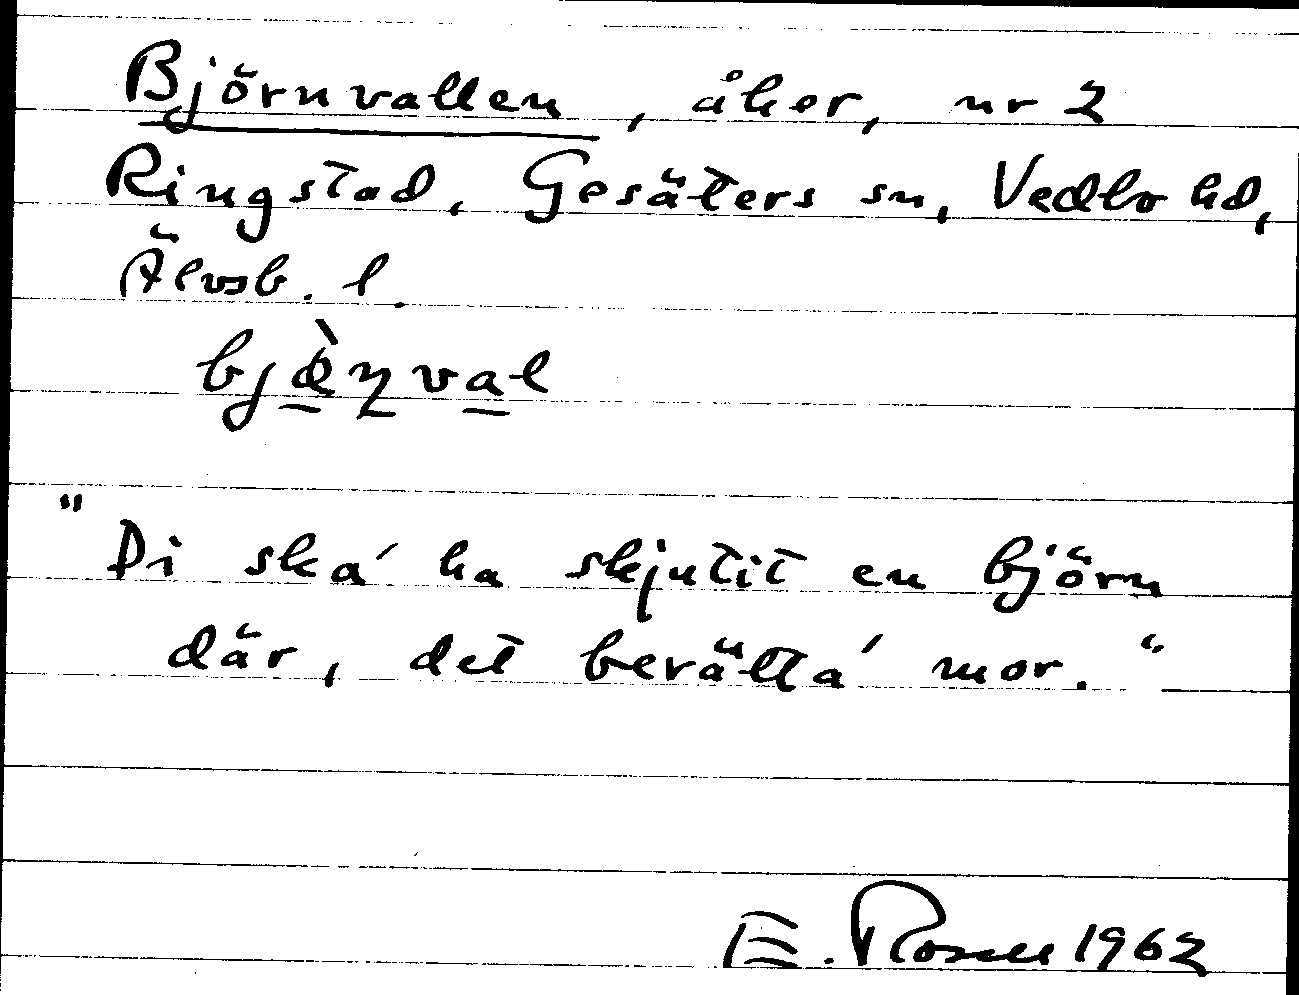 Björnvallen, åker, nr 2
Ringstad, Gesäters sn, Vedbo hd,
Älvsb. l.
"Di ska' ha skjutit en björn
där, det berätta' mor."
E. Rosell 1962